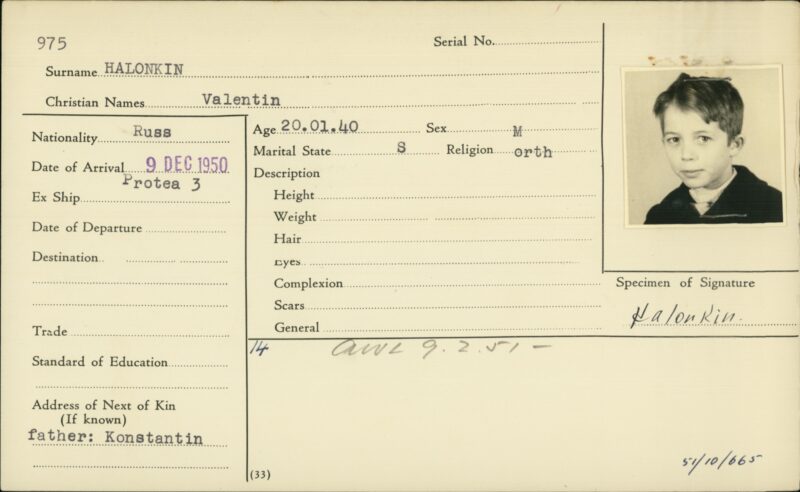 975
Serial No.
Surname HALONKIN
Christian Names Valentin
Nationality Russ
Date of Arrival 9 DEC 1950
Ex Ship Protea 3
Date of Departure
Destination
Trade
Standard of Education
Address of Next of Kin
(If known)
father: Konstantin
Age 20.01.40 Sex M
Marital State S Religion orth
Description
Height
Weight
Hair
Eyes
Complexion
Scars
General
Specimen of Signature
Halonkin.
14 AWL 9.2.51-
(33)
51/10/665